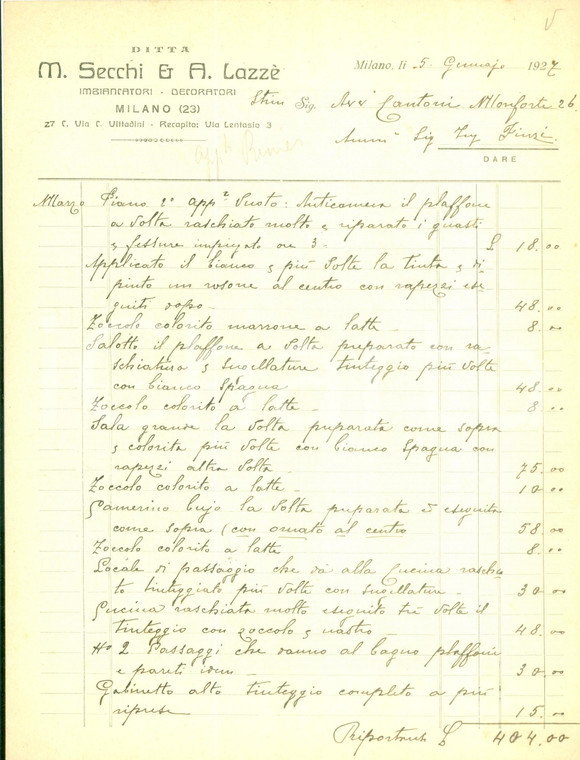 V
DITTA
M. Secchi & A. Lazzè
IMBIANCATORI - DECORATORI
MILANO (23)
27 C. Via C. Vittadini - Recapito: Via Lentasio 3
Milano, li 5 Gennajo 1927
Sig. Avv Cantoni Monforte 26
Sig Ing Finzi
DARE
Marzo Piano 1° app. Vuoto: Anticamera il plaffone
a volta raschiato molto e riparato i guasti
e fissure impiegato ore 3 - £ 18.00
Applicato il bianco e più volte la tinta e di-
pinto un rosone al centro con rapezzi ese-
guiti dopo - 48.00
Zoccolo colorito marrone a latte - 8.00
Salotto il plaffone a volta preparato con ra-
schiatura e sugellature tinteggio più volte
con bianco Spagna 48.00
Zoccolo colorito a latte - 8.00
Sala grande la volta preparata come sopra
e colorita più volte con bianco Spagna con
rapezzi altra volta - 75.00
Zoccolo colorito a latte - 10.00
Camerino bujo la volta preparata ed eseguita
come sopra (con ornato al centro 58.00
Zoccolo colorito a latte 8.00
Locale di passaggio che dà alla Cucina raschia-
to tinteggiato più volte con sugellature - 30.00
Cucina raschiata molto eseguito tre volte il
tinteggio con zoccolo e nastro - 48.00
N° 2 Passaggi che danno al bagno plaffoni
e pareti idem - 30.00
Gabinetto alto tinteggio completo a più
riprese 15.00
Riportarsi £ 404.00